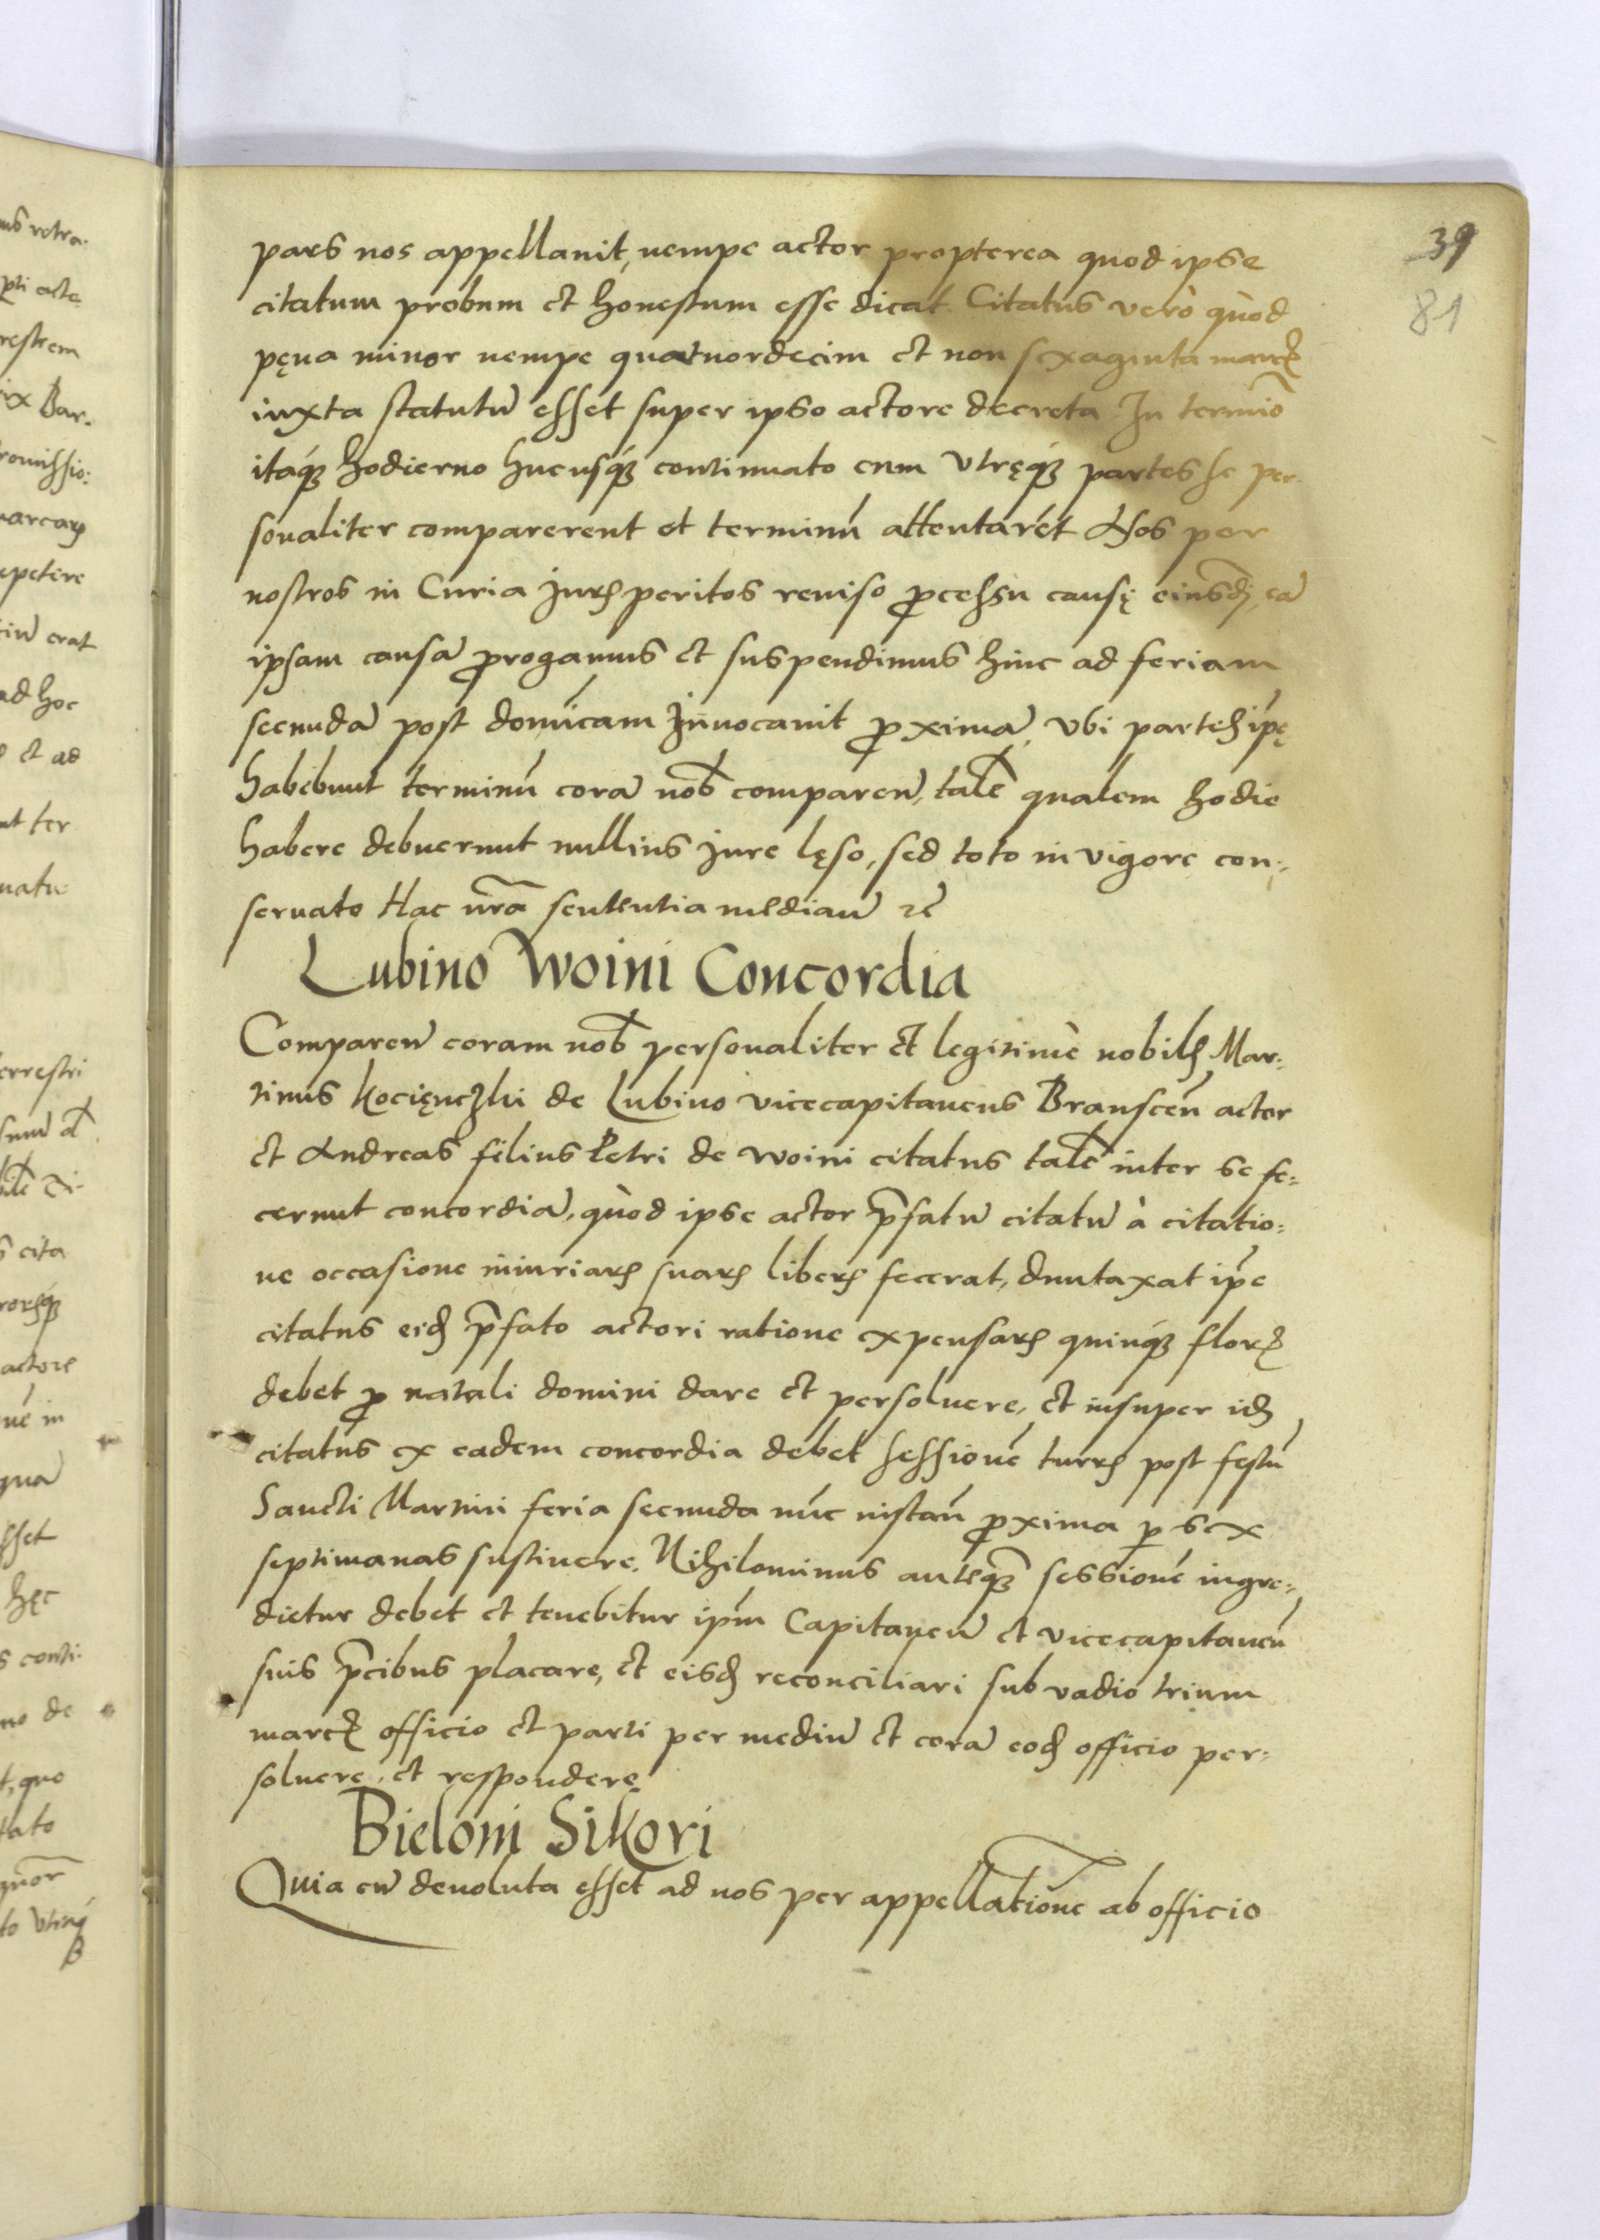 39
81
pars nos appellauit, nempe actor propterea quod ipse
citatum probum et honestum esse dicat. Citatus verò quòd
pęna minor nempe quatuordecim et non sexaginta marcꝝ
iuxta statutū esset super ipso actore decreta. In termĩo
itáqꝫ hodierno hucusqꝫ continuato cum vtręqꝫ partes se per-
sonaliter comparerent et terminū attentarēt Nos per
nostros in Curia Jurꝭ peritos reuiso ꝓcessu causę eiusdꝫ, eā
ipsam causā ꝓrogamus et suspendimus hinc ad feriam
secundā post domīcam Inuocauit ꝓximā, vbi partes ip̄ę
habebunt terminū corā nob̄ comparen̄, talē qualem hodie
habere debuerunt nullius Jure lęso, sed toto in vigore con-
seruato Hac nr̄a sententia median̄ ꝛc̄
Lubino Woini Concordia
Comparen̄ coram nob̄ personaliter et legitimè nobilꝭ Mar-
tinus Kocięnczki de Lubino vicecapitaneus Branscen̄ actor
et Andreas filius Petri de Woini citatus talē inter se fe-
cerunt concordiā, quòd ipse actor p̄fatū citatū à citatio-
ne occasione iniuriarꝝ suarꝝ liberꝝ fecerat, duntaxat ip̄e
citatus eidꝫ p̄fato actori ratione expensarꝝ quinqꝫ florꝝ
debet ꝓ natali domini dare et persoluere, et insuper idꝫ
citatus ex eadem concordia debet sessionē turrꝭ post festū
Sancti Martini feria secunda nūc instan̄ ꝓxima ꝑ sex
septimanas sustinere. Nihilominus anteqꝫ sessionē ingre-
dietur debet et tenebitur ip̄m Capitaneū et vicecapitaneū
suis p̄cibus placare, et eisdꝫ reconciliari sub vadio trium
marcꝝ officio et parti per mediū et corā eodꝫ officio per-
soluere, et respondere
Bieloni Sikori
Quia cū deuoluta esset ad nos per appellationē ab officio